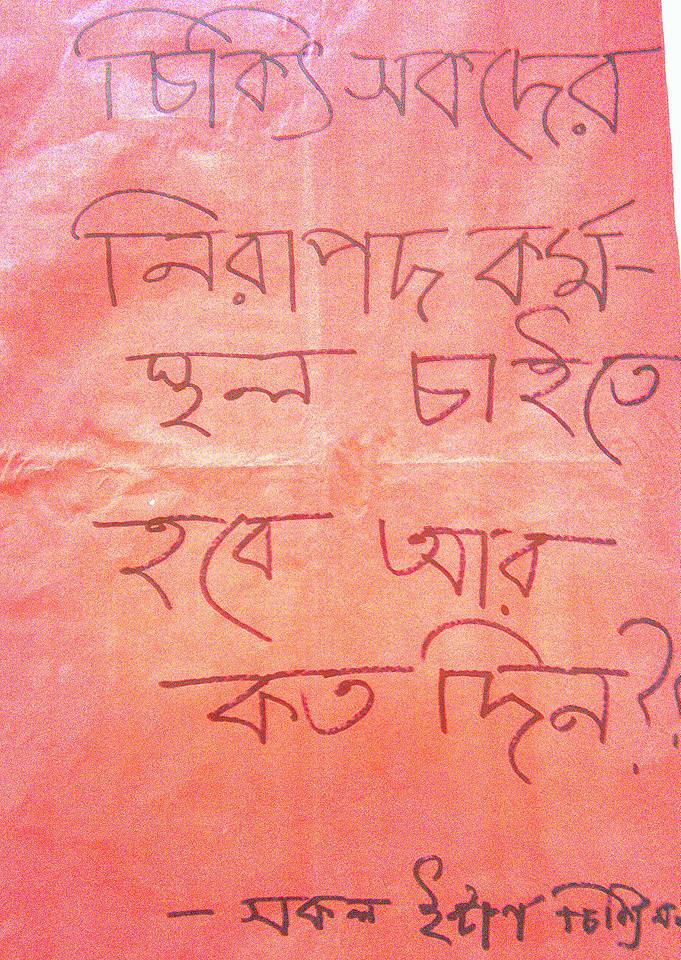 চিকিৎসকদের
নিরাপদ কর্ম-
স্থল চাইতে
হবে আর
কত দিন??
- সকল ইন্টার্ণ